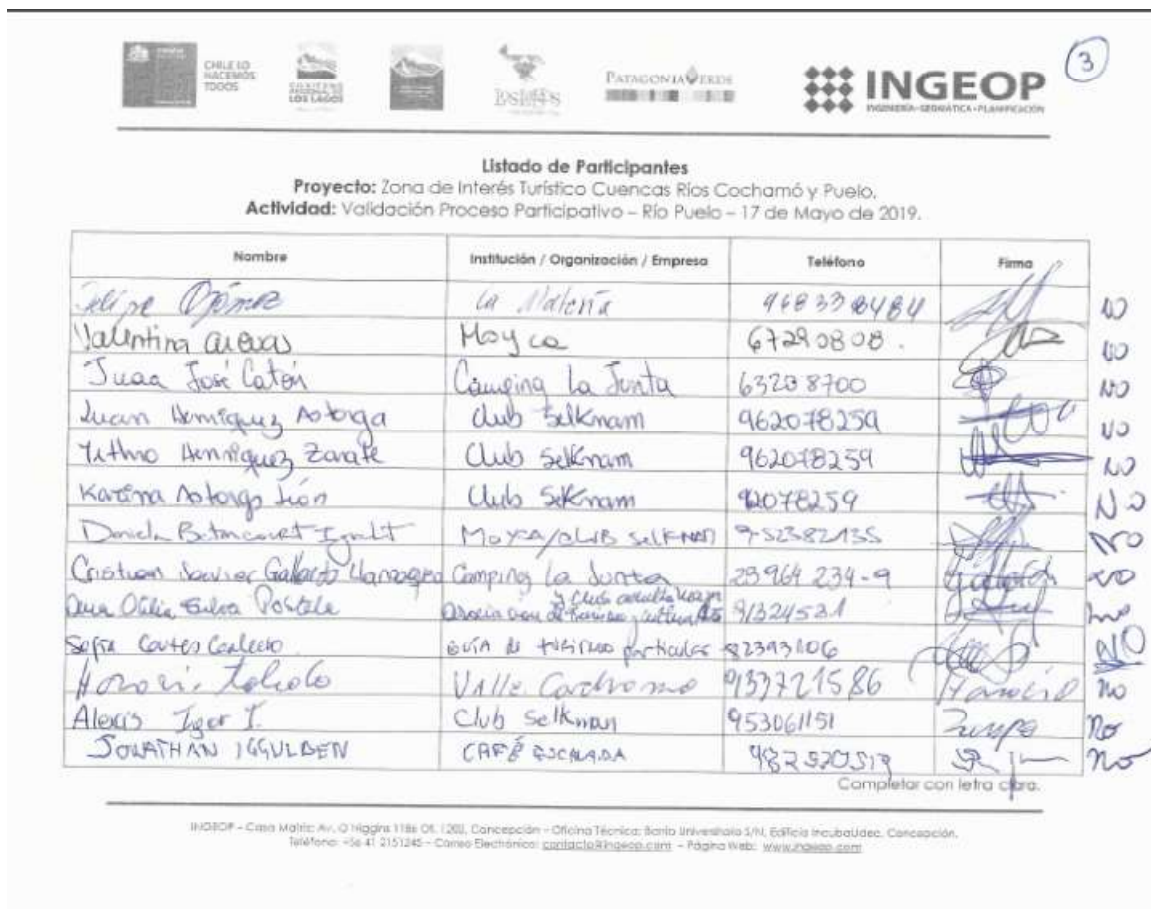 3
CHILE LO
HACEMOS
TODOS
GOBIERNO
REGIONAL DE
LOS LAGOS
PATAGONIA VERDE
INGEOP
INGENIERÍA-GEOMÁTICA-PLANIFICACIÓN
Listado de Participantes
Proyecto: Zona de Interés Turístico Cuencas Ríos Cochamó y Puelo.
Actividad: Validación Proceso Participativo – Río Puelo – 17 de Mayo de 2019.
Nombre Institución / Organización / Empresa Teléfono Firma
Felipe La NO
Valentina Cuevas Moyca 67290808. NO
Juan José Catón Camping La Junta 63208700 NO
Juan Henriquez Astorga Club Selknam 962078259 NO
Henriquez Zarate Club Selknam 962078259 NO
Karina Astorga León Club Selknam 92078259 NO
Daniela Betancourt Igualt MOYCA/CLUB SELKNAM 9-52382135 NO
Cristian Javier Gallardo Camping La Junta 23964 234-9 NO
Ana Otilia Silva 91324531 no
Sofía Cortes GUÍA de turismo particular 82393106 NO
Valle 937721586 Horacio no
Alexis Igor I. Club Selknam 953061151 no
JONATHAN IGGULDEN CAFÉ ESCALADA 982520519 no
Completar con letra clara.
INGEOP – Casa Matriz: Av. O'Higgins 1186 Of. 1202, Concepción – Oficina Técnica: Barrio Universitario S/N, Edificio IncubaUdec, Concepción.
Teléfono: +56 41 2151245 – Correo Electrónico: contacto@ingeop.com – Página Web: www.ingeop.com